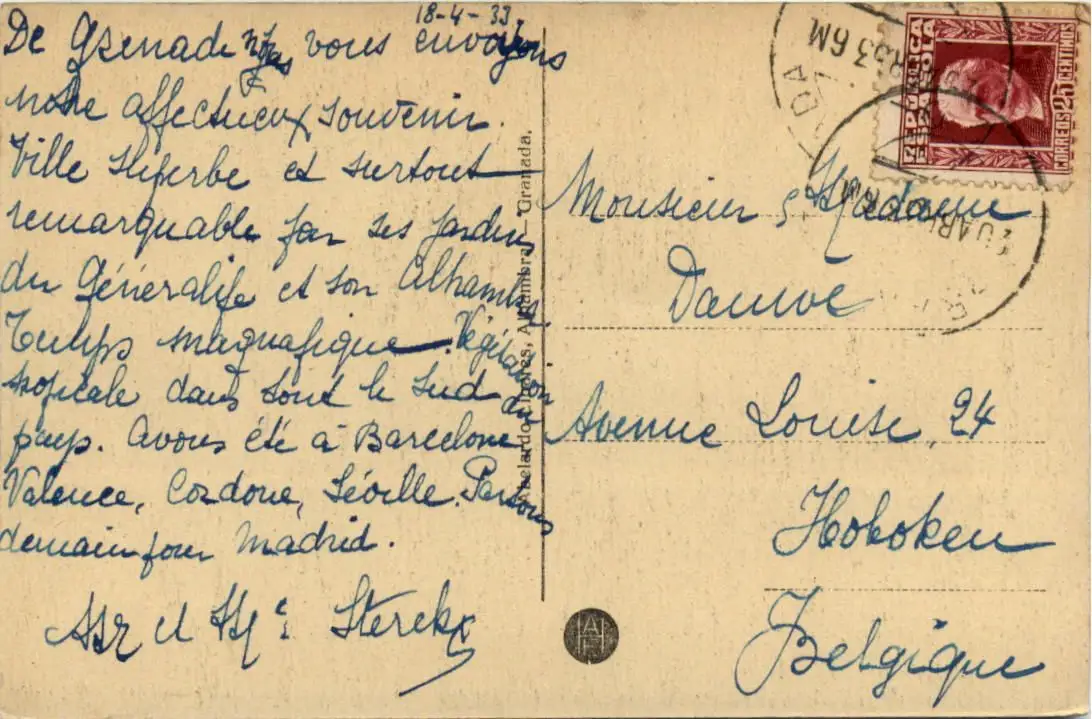 18-4-33
De Grenade nous vous envoyons
notre affectueux souvenir.
Ville superbe et surtout
remarquable par ses jardins
du Généralife et son Alhambra
Temps magnafique. Végétation
tropicale dans tout le sud du
pays. Avons été à Barcelone
Valence, Cordoue, Séville. Partons
demain pour Madrid.
Mr et Me Sterckx
Abelardo Linares, Alhambra - Granada.
REPUBLICA
ESPAÑOLA
CORREOS 25 CENTIMOS
Monsieur & Madame
Dauwe
Avenue Louise, 24
Hoboken
Belgique